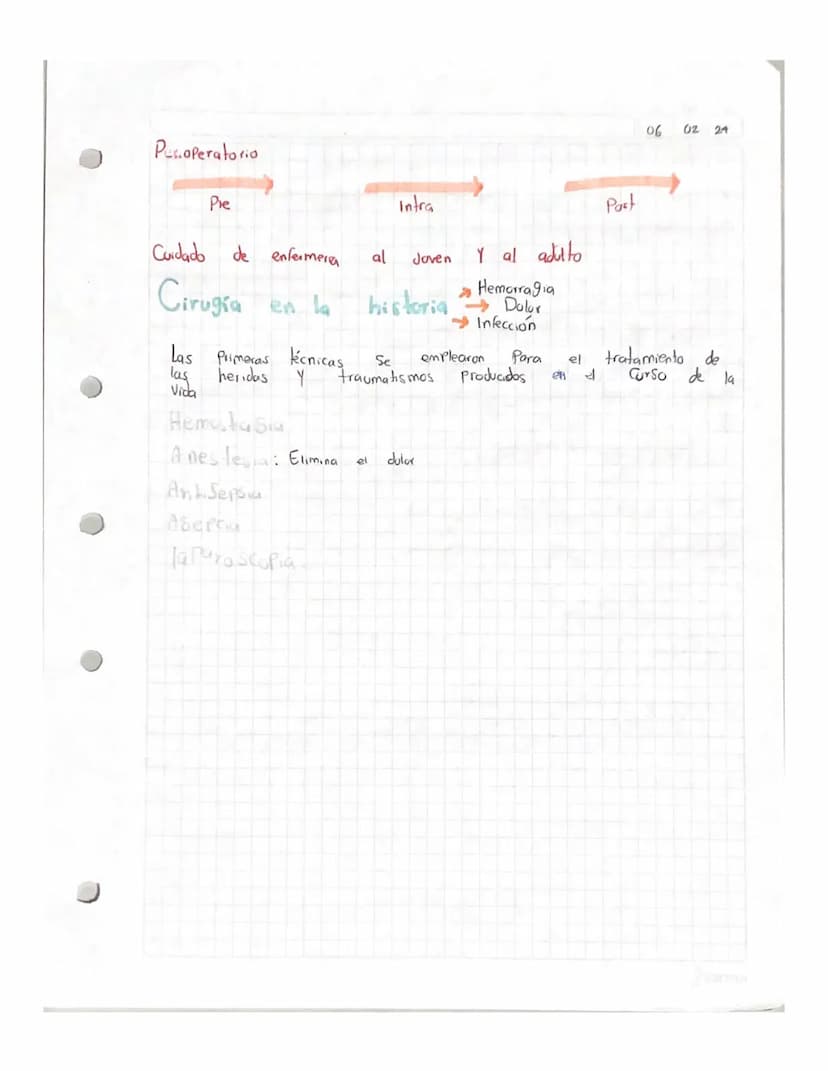 06 02 24
Perioperatorio
Pre Intra Post
Cuidado de enfermera al Joven Y al adulto
Cirugía en la historia
Hemorragia
Dolor
Infección
Las Primeras técnicas se emplearon Para el tratamiento de
las heridas Y traumatismos Producidos en el Curso de la
Vida
Hemostasia
Anestesia: Elimina el dolor
Antisepsia
Asepcia
laparoscopia